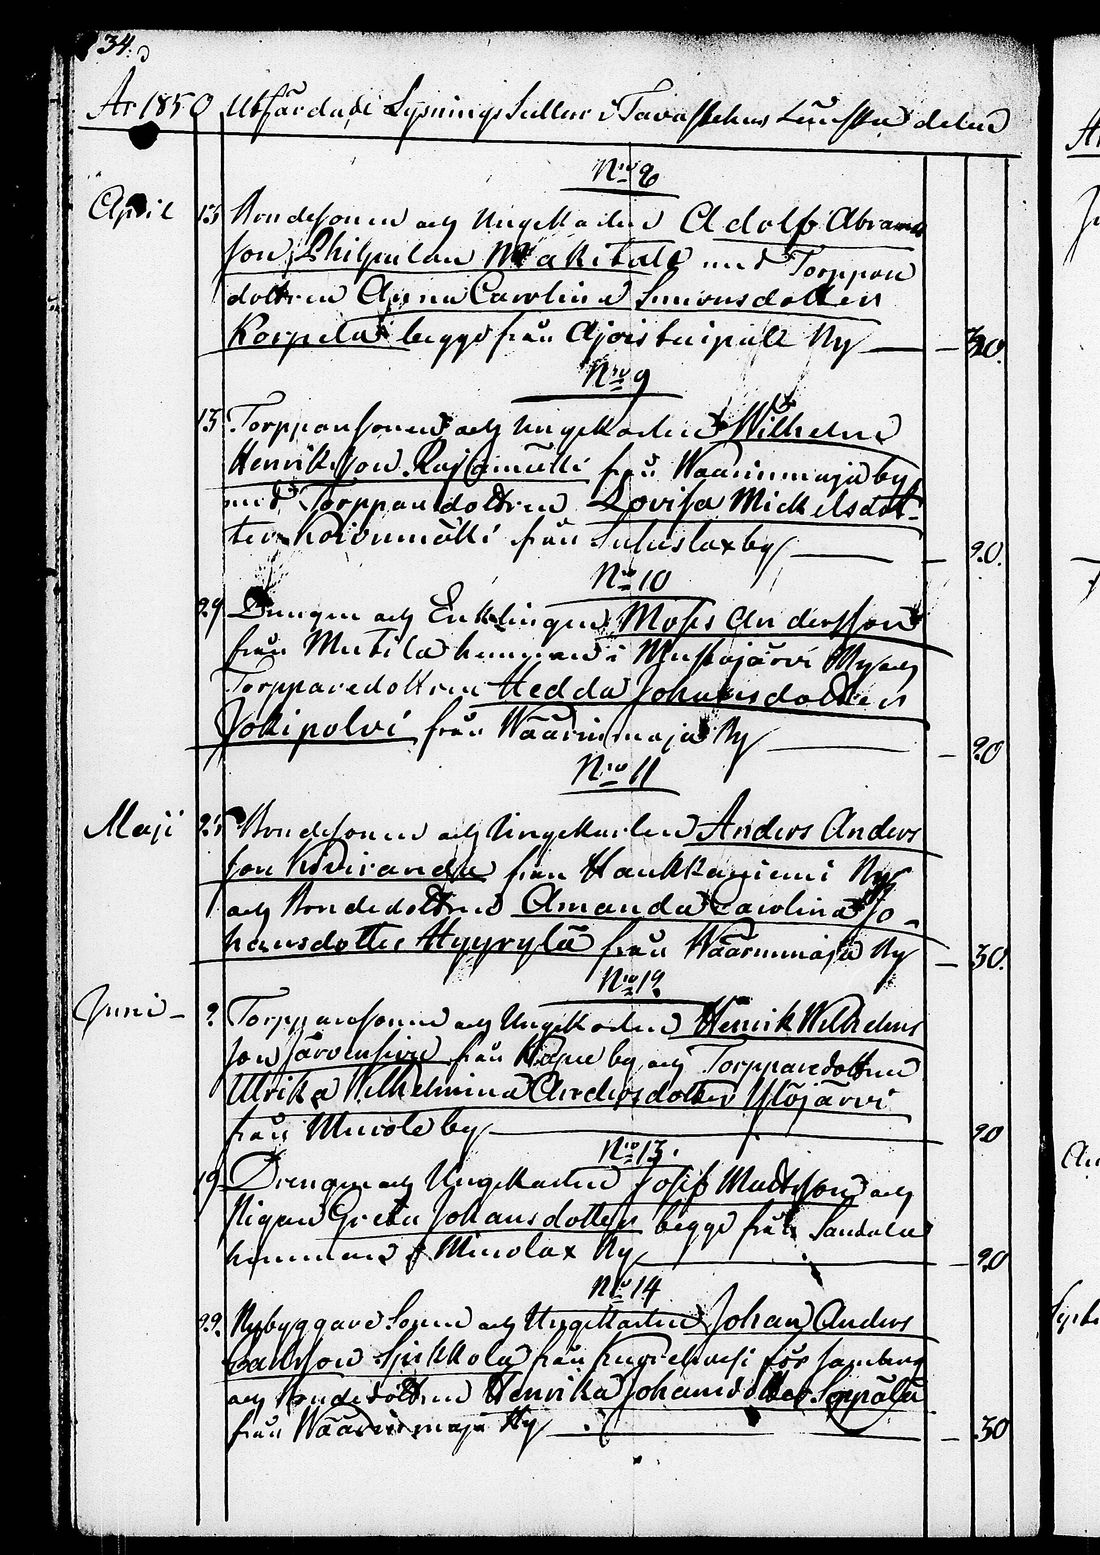 34.
År 1850 Utfärdade Lysnings Sedlar i Tavastehus Länska delen
No 8
April 15 Bondesonen och Ungekarlen Adolf Abrams
son Philpulan Mäkitalo med Torppare
dottren Anna Carolina Simonsdotter
Korpela begge från by 30.
No 9
15 Torpparsonen och Ungekarlen Wilhelm
Henriksson Rajamäki från Wäärinmaja by
med Torppardottren Lovisa Mickelsdot-
ter Koivumäki från by 20.
No 10
29 Drengen och Enklingen Moses Andersson
från hemman i Mustajärvi By och
Torpparedottren Hedda Johansdotter
Jokipolvi från Wäärinmaja By 20
No 11
Maji 25 Bondesonen och Ungekarlen Anders Anders
son Kiviranda från Haukkaniemi By
och Bondedottren Amanda Carolina Jo-
hansdotter Hyyrylä från Wäärinmaja By 30.
No 12
Juni 2 Torpparesonen och Ungekarlen Henrik Wilhelms
son Järvensivu från by och Torpparedottren
Ulrika Wilhelmina Andersdotter Ylöjärvi
från Murole by 20
No 13.
19 Drengen och Ungekarlen Josef Mattsson och
Pigan Greta Johansdotter begge från
hemman i Minolax By 20
No 14
22. Nybyggare Sonen och Ungekarlen Johan Anders
son från för
och Bondedottren Henrika Johansdotter Seppälä
från Wäärinmaja By 30